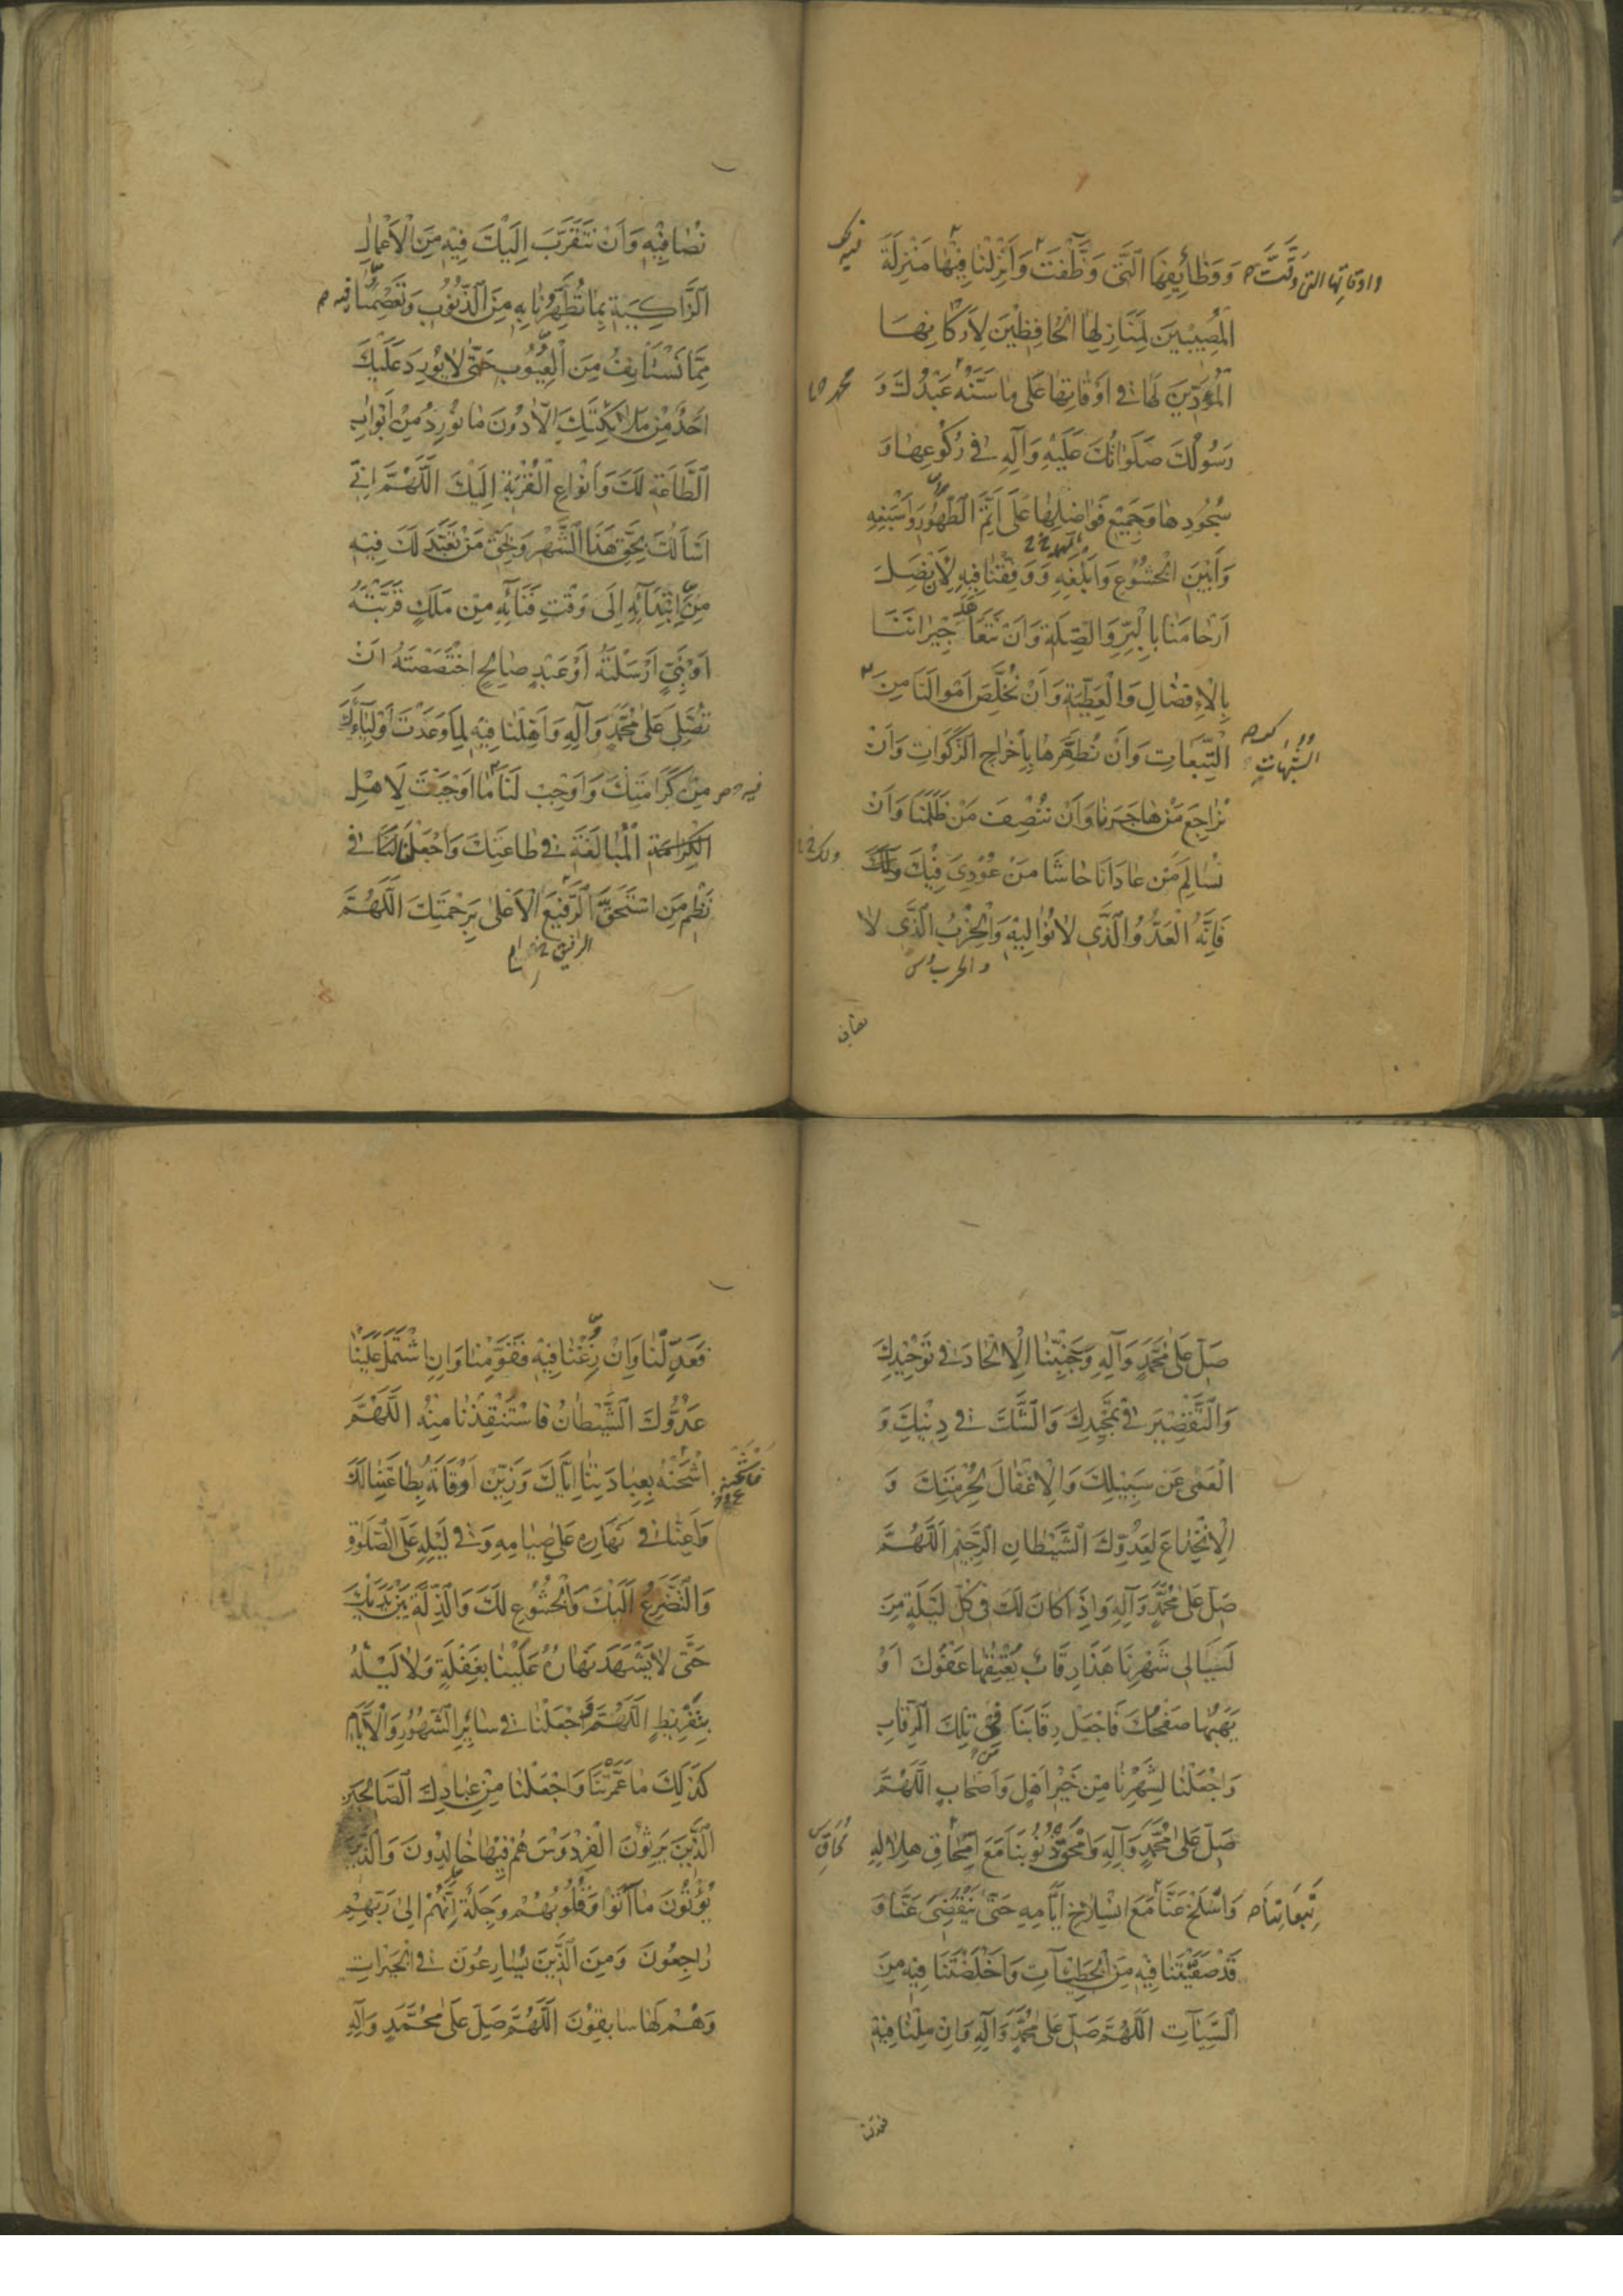 وَوَظَائِفِهَا الَّتِي وَظَّفْتَ وَأَنْزِلْنَا فِيْهَا مَنْزِلَةَ
واوقاتها التي وقّتّ
الْمُصِيْبِيْنَ لِمَنَازِلِهَا الْحَافِظِيْنَ لِأَرْكَانِهَا
الْمُؤَدِّيْنَ لَهَا فِي أَوْقَاتِهَا عَلَى مَا سَنَّهُ عَبْدُكَ وَ
محمد
رَسُولُكَ صَلَوَاتُكَ عَلَيْهِ وَآلِهِ فِي رُكُوعِهَا وَ
سُجُودِهَا وَجَمِيْعِ فَوَاضِلِهَا عَلَى أَتَمِّ الطَّهُورِ وَأَسْبَغِهِ
وَأَبْيَنِ الْخُشُوعِ وَأَبْلَغِهِ وَوَفِّقْنَا فِيهِ لِأَنْ نَصِلَ
أَرْحَامَنَا بِالْبِرِّ وَالصِّلَةِ وَأَنْ نَتَعَاهَدَ جِيْرَانَنَا
بِالْإِفْضَالِ وَالْعَطِيَّةِ وَأَنْ نُخَلِّصَ أَمْوَالَنَا مِنَ
التَّبِعَاتِ وَأَنْ نُطَهِّرَهَا بِإِخْرَاجِ الزَّكَوَاتِ وَأَنْ
الشبهات
نُرَاجِعَ مَنْ هَاجَرَنَا وَأَنْ نُنْصِفَ مَنْ ظَلَمَنَا وَأَنْ
نُسَالِمَ مَنْ عَادَانَا حَاشَا مَنْ عُوْدِيَ فِيْكَ وَلَكَ
ولك
فَإِنَّهُ الْعَدُوُّ الَّذِي لَا نُوَالِيْهِ وَالْحِزْبُ الَّذِي لَا
والحرب
نصافي
نُصَافِيْهِ وَأَنْ نَتَقَرَّبَ إِلَيْكَ فِيْهِ مِنَ الْأَعْمَالِ
الزَّاكِيَةِ بِمَا تُطَهِّرُنَا بِهِ مِنَ الذُّنُوْبِ وَتَعْصِمُنَا فيه
مِمَّا نَسْتَأْنِفُ مِنَ الْعُيُوبِ حَتَّى لَا يُوْرِدَ عَلَيْكَ
أَحَدٌ مِنْ مَلَائِكَتِكَ إِلَّا دُوْنَ مَا نُوْرِدُ مِنْ أَبْوَابِ
الطَّاعَةِ لَكَ وَأَنْوَاعِ الْقُرْبَةِ إِلَيْكَ اللَّهُمَّ إِنِّي
أَسْأَلُكَ بِحَقِّ هَذَا الشَّهْرِ وَبِحَقِّ مَنْ تَعَبَّدَ لَكَ فِيْهِ
مِنِ ابْتِدَائِهِ إِلَى وَقْتِ فَنَائِهِ مِنْ مَلَكٍ قَرَّبْتَهُ
أَوْ نَبِيٍّ أَرْسَلْتَهُ أَوْ عَبْدٍ صَالِحٍ اخْتَصَصْتَهُ أَنْ
تُصَلِّيَ عَلَى مُحَمَّدٍ وَآلِهِ وَأَهِّلْنَا فِيْهِ لِمَا وَعَدْتَ أَوْلِيَاءَكَ
مِنْ كَرَامَتِكَ وَأَوْجِبْ لَنَا مَا أَوْجَبْتَ لِأَهْلِ
الْكِرَامَةِ الْمُبَالَغَةِ فِي طَاعَتِكَ وَاجْعَلْنَا فِي
نَظْمِ مَنِ اسْتَحَقَّ الرَّفِيْعَ الْأَعْلَى بِرَحْمَتِكَ اللَّهُمَّ
الرفيق
صَلِّ عَلَى مُحَمَّدٍ وَآلِهِ وَجَنِّبْنَا الْإِلْحَادَ فِي تَوْحِيْدِكَ
وَالتَّقْصِيْرَ فِي تَمْجِيْدِكَ وَالشَّكَّ فِي دِيْنِكَ وَ
الْعَمَى عَنْ سَبِيْلِكَ وَالْإِغْفَالَ لِحُرْمَتِكَ وَ
الْإِنْخِدَاعَ لِعَدُوِّكَ الشَّيْطَانِ الرَّجِيْمِ اللَّهُمَّ
صَلِّ عَلَى مُحَمَّدٍ وَآلِهِ وَإِذَا كَانَ لَكَ فِي كُلِّ لَيْلَةٍ مِنْ
لَيَالِي شَهْرِنَا هَذَا رِقَابٌ يُعْتِقُهَا عَفْوُكَ أَوْ
يَهَبُهَا صَفْحُكَ فَاجْعَلْ رِقَابَنَا فِي تِلْكَ الرِّقَابِ
وَاجْعَلْنَا لِشَهْرِنَا مِنْ خَيْرِ أَهْلٍ وَأَصْحَابٍ اللَّهُمَّ
صَلِّ عَلَى مُحَمَّدٍ وَآلِهِ وَامْحَقْ ذُنُوْبَنَا مَعَ امِّحَاقِ هِلَالِهِ
وَاسْلَخْ عَنَّا مَعَ انْسِلَاخِ أَيَّامِهِ حَتَّى يَنْقَضِيَ عَنَّا وَ
تبعاتنا
قَدْ صَفَّيْتَنَا فِيْهِ مِنَ الْخَطِيْئَاتِ وَأَخْلَصْتَنَا فِيْهِ مِنَ
السَّيِّئَاتِ اللَّهُمَّ صَلِّ عَلَى مُحَمَّدٍ وَآلِهِ وَإِنْ مِلْنَا فِيْهِ
فعدلنا
فَعَدِّلْنَا وَإِنْ زِغْنَا فِيْهِ فَقَوِّمْنَا وَإِنِ اشْتَمَلَ عَلَيْنَا
عَدُوُّكَ الشَّيْطَانُ فَاسْتَنْقِذْنَا مِنْهُ اللَّهُمَّ
اشْحَنْهُ بِعِبَادَتِنَا إِيَّاكَ وَزَيِّنْ أَوْقَاتَهُ بِطَاعَتِنَا لَكَ
وَأَعِنَّا فِي نَهَارِهِ عَلَى صِيَامِهِ وَفِي لَيْلِهِ عَلَى الصَّلَوةِ
وَالتَّضَرُّعِ إِلَيْكَ وَالْخُشُوْعِ لَكَ وَالذِّلَّةِ بَيْنَ يَدَيْكَ
حَتَّى لَا يَشْهَدَ نَهَارُهُ عَلَيْنَا بِغَفْلَةٍ وَلَا لَيْلُهُ
بِتَفْرِيْطٍ اللَّهُمَّ وَاجْعَلْنَا فِي سَائِرِ الشُّهُوْرِ وَالْأَيَّامِ
كَذَلِكَ مَا عَمَّرْتَنَا وَاجْعَلْنَا مِنْ عِبَادِكَ الصَّالِحِيْنَ
الَّذِيْنَ يَرِثُوْنَ الْفِرْدَوْسَ هُمْ فِيْهَا خَالِدُوْنَ وَالَّذِيْنَ
يُؤْتُوْنَ مَا آتَوْا وَقُلُوْبُهُمْ وَجِلَةٌ أَنَّهُمْ إِلَى رَبِّهِمْ
رَاجِعُوْنَ وَمِنَ الَّذِيْنَ يُسَارِعُوْنَ فِي الْخَيْرَاتِ
وَهُمْ لَهَا سَابِقُوْنَ اللَّهُمَّ صَلِّ عَلَى مُحَمَّدٍ وَآلِهِ